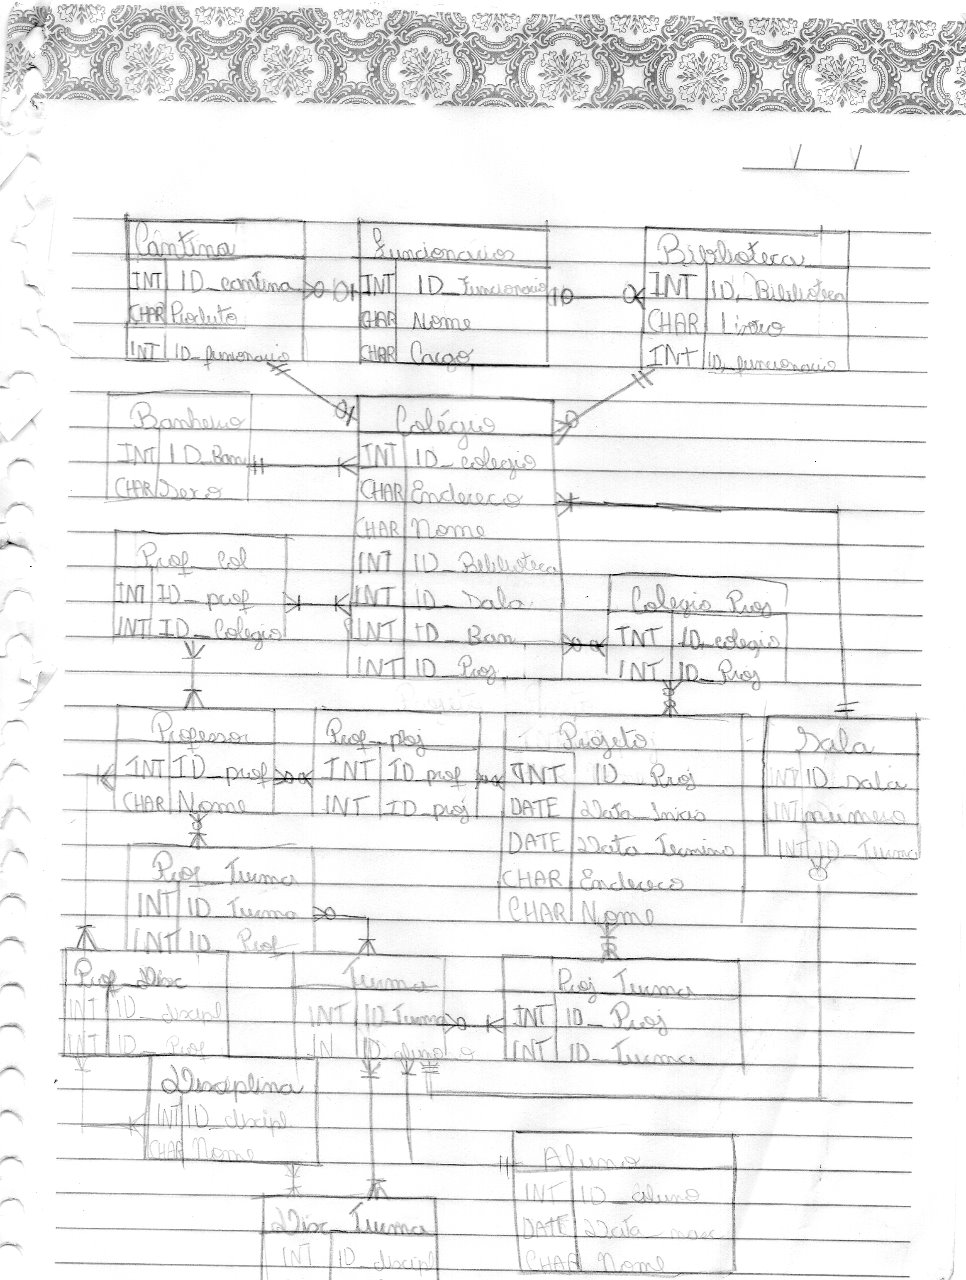 Cantina
INT ID_cantina
CHAR Produto
INT ID_funcionario
Funcionarios
INT ID_Funcionario
CHAR Nome
CHAR Cargo
Biblioteca
INT ID_Biblioteca
CHAR Livro
INT ID_funcionario
Banheiro
INT ID_Ban
CHAR Sexo
Colégio
INT ID_colegio
CHAR Endereco
CHAR Nome
INT ID_Biblioteca
INT ID_Sala
INT ID_Ban
INT ID_Proj
Prof_Col
INT ID_prof
INT ID_Colegio
Colegio_Proj
INT ID_colegio
INT ID_Proj
Professor
INT ID_prof
CHAR Nome
Prof_proj
INT ID_prof
INT ID_proj
Projeto
INT ID_Proj
DATE Data_Inicio
DATE Data_Termino
CHAR Endereco
CHAR Nome
Sala
INT ID_Sala
INT numero
INT ID_Turma
Prof_Turma
INT ID_Turma
INT ID_Prof
Prof_Disc
INT ID_discipl
INT ID_Prof
Turma
INT ID_Turma
IN ID_aluno
Proj_Turma
INT ID_Proj
INT ID_Turma
Disciplina
INT ID_discipl
CHAR Nome
Aluno
INT ID_aluno
DATE Data_nasc
CHAR Nome
Disc_Turma
INT ID_discipl